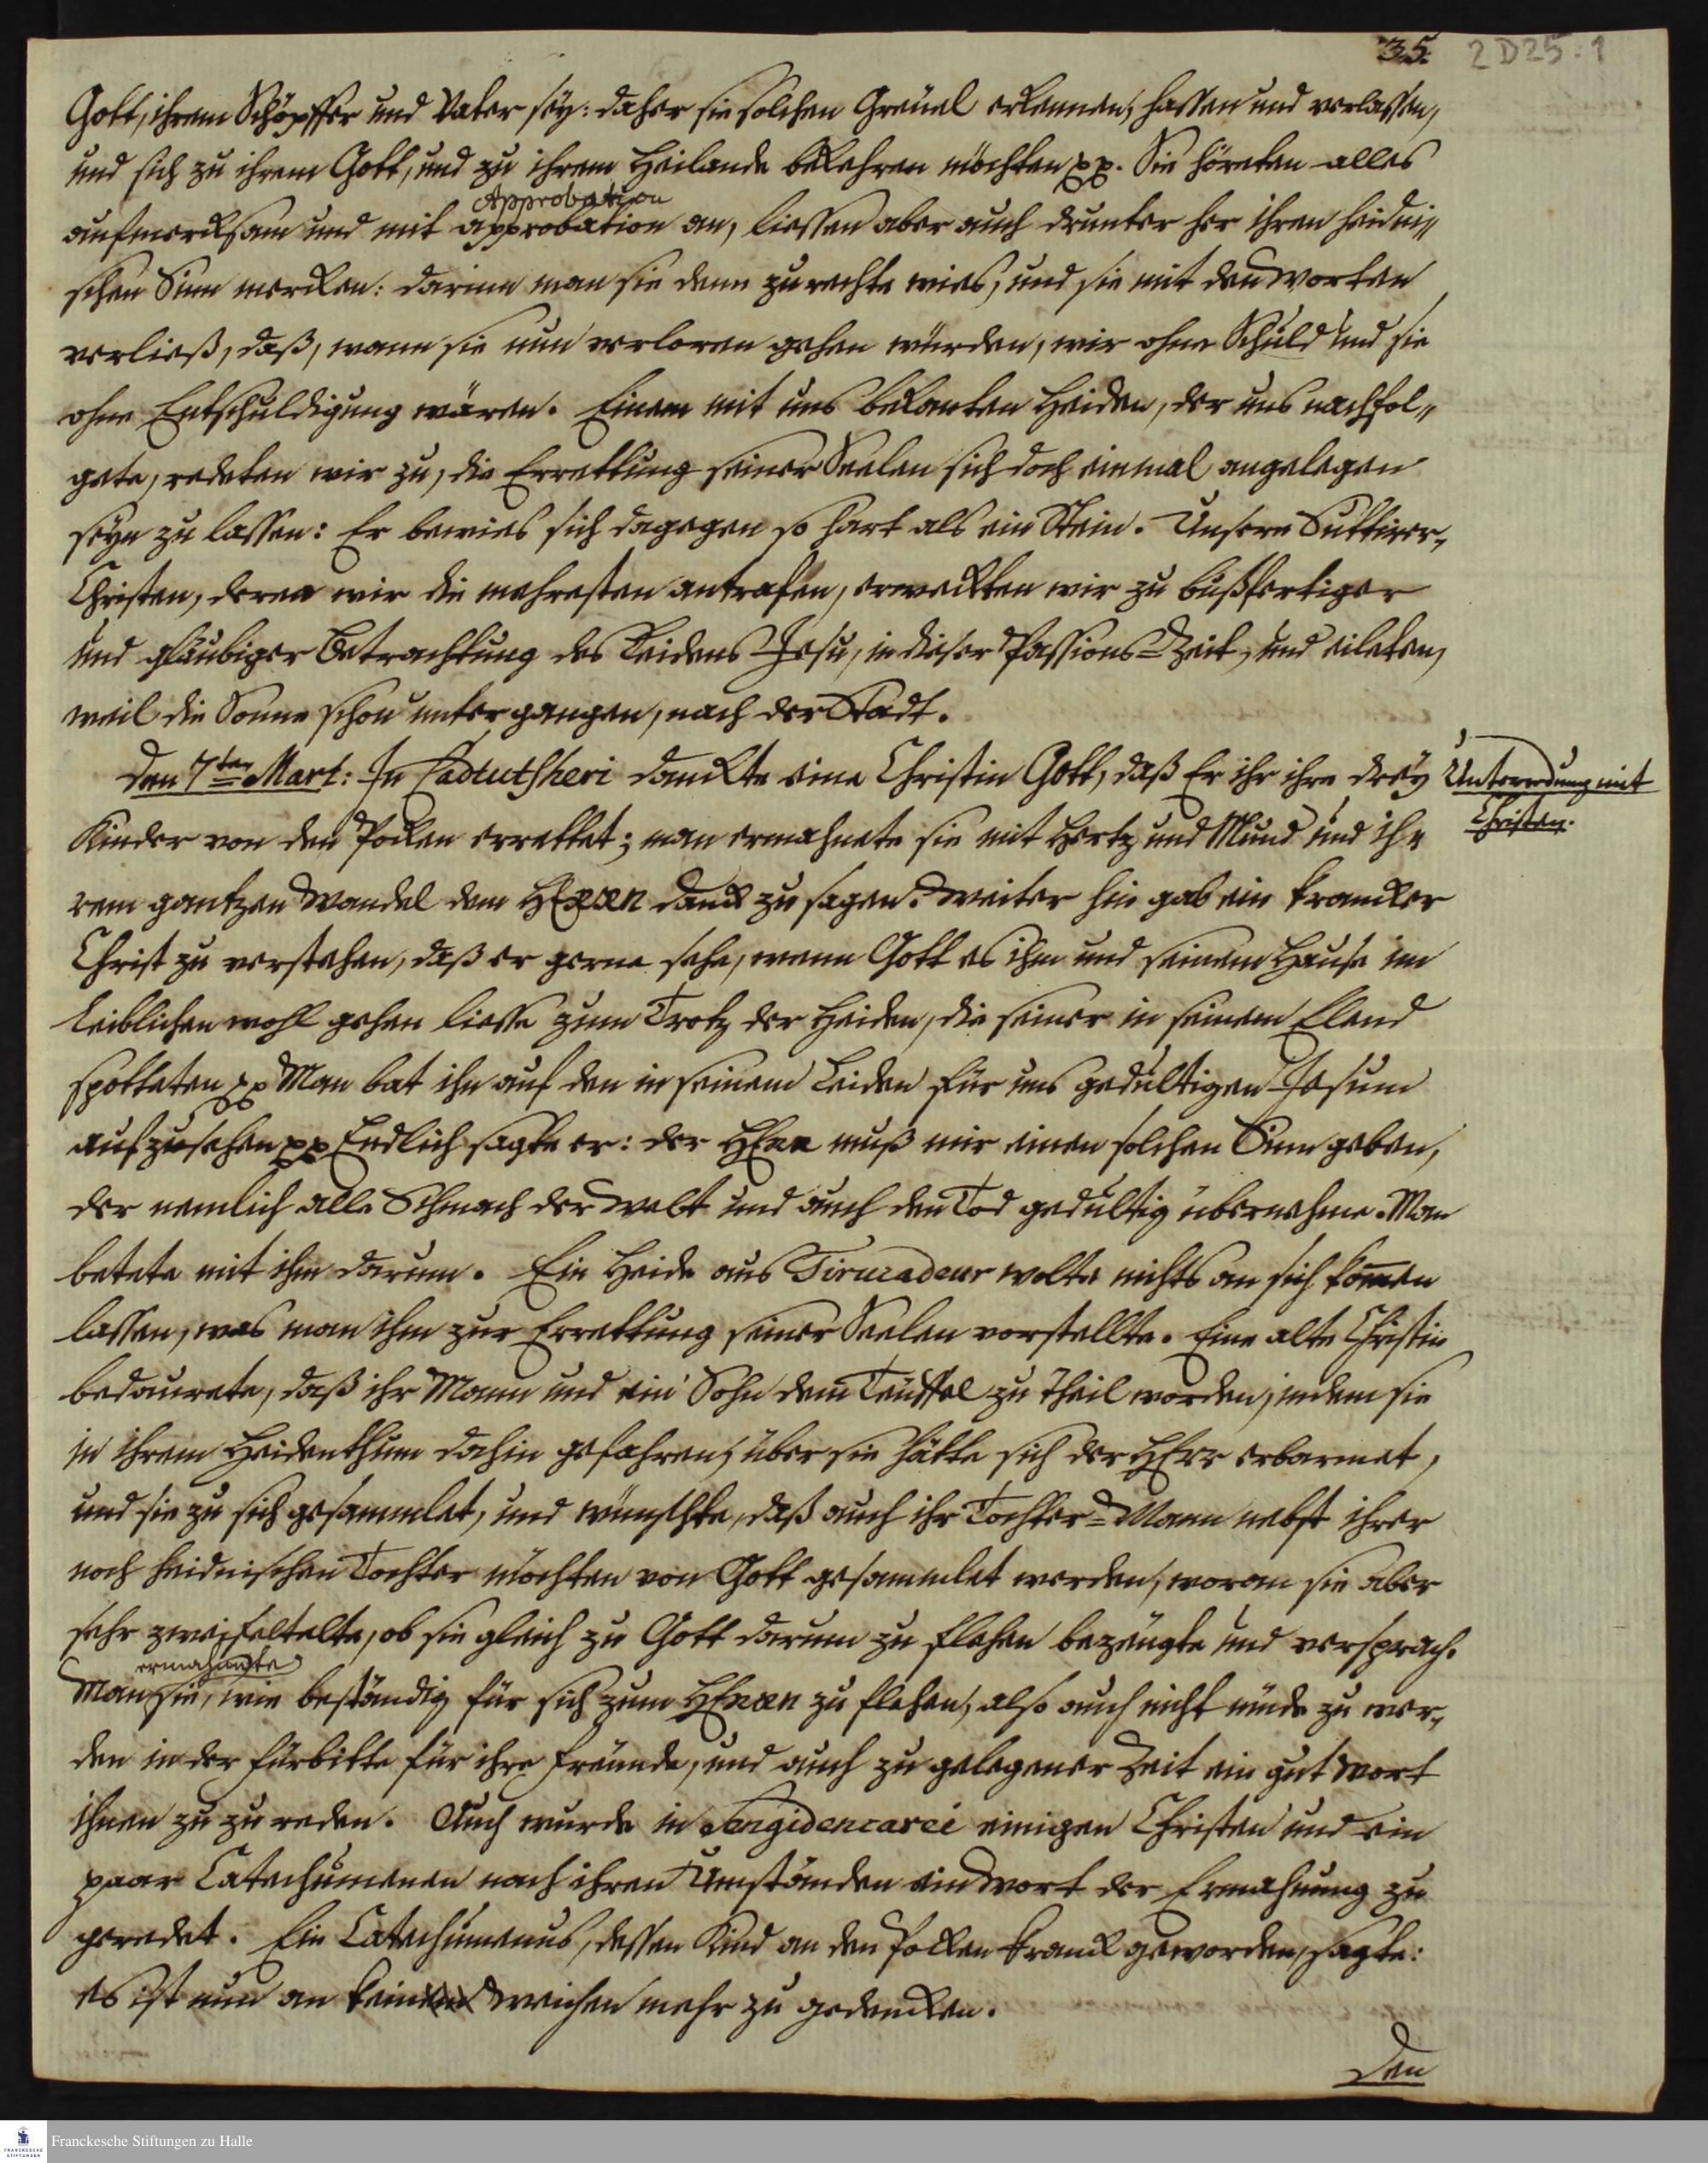 35. 2 D25:1
Gott, ihrem Schöpffer und Vater sey: daher sie solchen Greüel erkennen, hassen und verlassen,
und sich zu ihrem Gott, und zu ihrem Heilande bekehren möchten pp. Sie höreten alles
Approbation
aufmercksam und mit approbation an, liessen aber auch drunter her ihren heidni„
schen Sinn mercken: darinn man sie denn zu rechte wies, und sie mit den Worten
verließ, daß, wann sie nun verloren gehen würden, wir ohne Schuld und sie
ohne Entschuldigung wären. Einem mit uns bekanten Heiden, der uns nachfol„
gete, redeten wir zu, die Errettung seiner Seelen sich doch einmal angelegen
seyn zu lassen: Er bewies sich dagegen so hart als ein Stein. Unsere Suttirer„
Christen, deren wir die mehresten antrafen, erweckten wir zu bußfertiger
und gläubiger Betrachtung des Leidens Jesu, in dieser Passions=Zeit, und eileten,
weil die Sonne schon untergangen, nach der Stadt.
Den 7ten Mart: In Cadtutsheri danckte eine Christin Gott, daß Er ihr ihre drey
Unterredung mit
Christen.
Kinder von den Pocken errettet; man ermahnete sie mit Hertz und Mund und ih„
rem gantzen Wandel dem HErren danck zu sagen. Weiter hin gab ein krancker
Christ zu verstehen, daß er gerne sehe, wenn Gott es ihm und seinem Hause im
leiblichen wohl gehen liesse zum Trotz der Heiden, die seiner in seinem Elend
spotteten pp Man bat ihn auf den in seinem Leiden für uns gedultigen Jesum
aufzusehen pp Endlich sagte er: der HErr muß mir einen solchen Sinn geben,
der nemlich alle Schmach der Welt und auch den Tod gedultig übernehme. Man
betete mit ihm darum. Ein Heide aus Tirucadeur wolte nichts an sich kom̄en
lassen, was man ihm zur Errettung seiner Seelen vorstellte. Eine alte Christin
bedaurete, daß ihr Mann und ein Sohn dem Teüffel zu Theil worden, indem sie
in ihrem Heidenthum dahin gefahren, über sie hätte sich der HErr erbarmet,
und sie zu sich gesammlet, und wünschte, daß auch ihr Tochter=Mann nebst ihrer
noch heidnischen Tochter möchten von Gott gesammlet werden, woran sie aber
sehr zweifeltelte, ob sie gleich zu Gott darum zu flehen bezeugte und versprach.
ermahnte
Man sie, wie beständig für sich zum HErren zu flehen, also auch nicht müde zu wer„
den in der Fürbitte für ihre Freünde, und auch zu gelegener Zeit ein gut Wort
ihnen zu zu reden. Auch wurde in Sengidencarei einigen Christen und ein
paar Catechumenen nach ihren Umständen ein Wort der Ermahnung zu
geredet. Ein Catechumenus, dessen Kind an den Pocken kranck geworden, sagte:
es ist nun an kein weichen mehr zu gedencken.
Den
Franckesche Stiftungen zu Halle